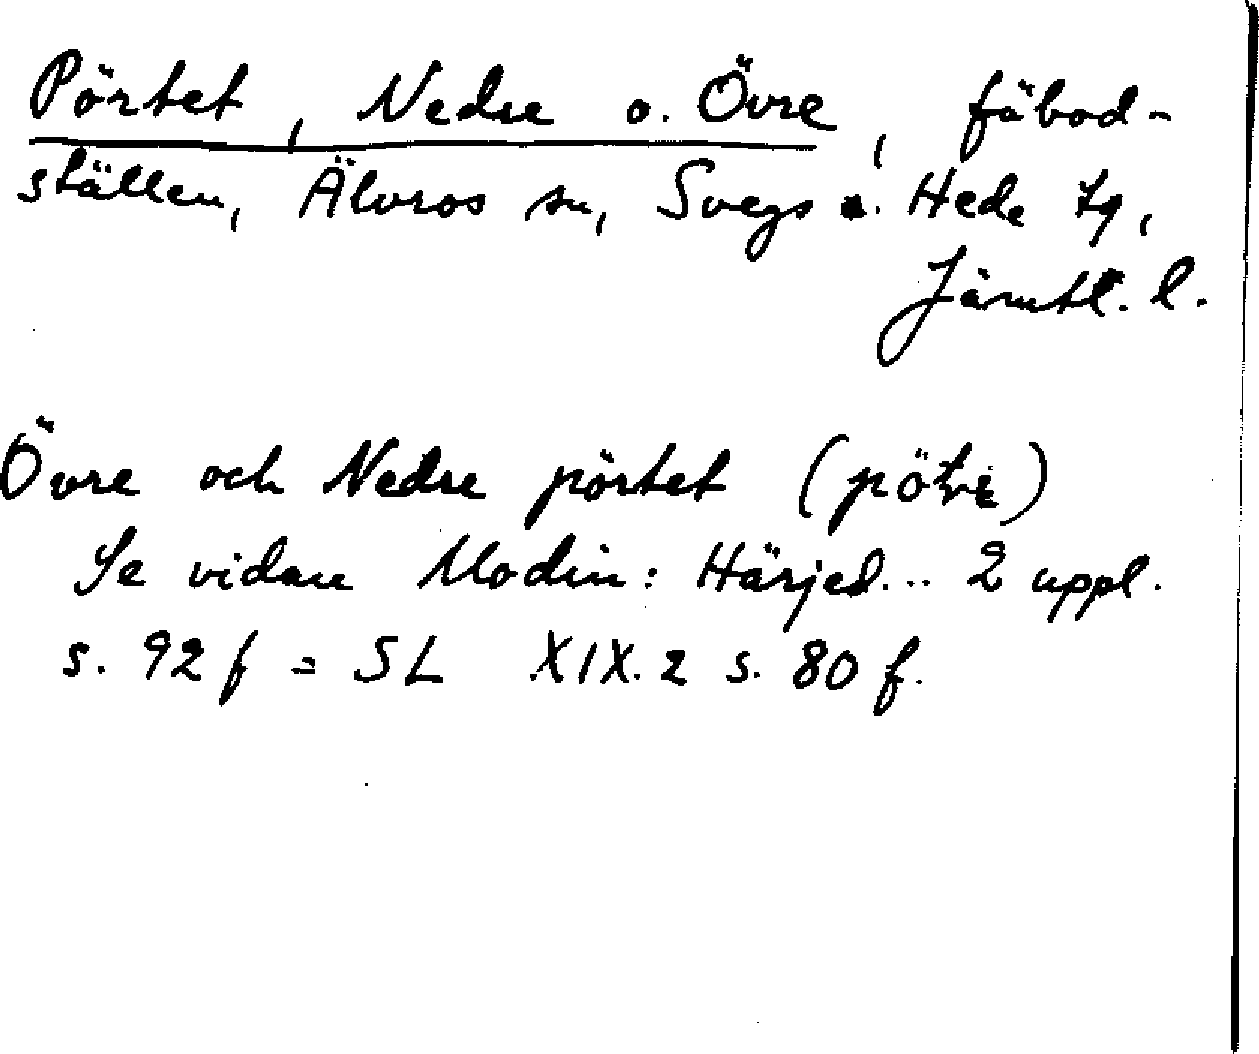 Pörtet, Nedre o. Övre, fäbod-
ställen, Älvros sn, Svegs o. Hede tg,
Jämtl. l.
Övre och Nedre pörtet
Se vidare Modin: Härjed... 2 uppl.
s. 92 f = SL XIX. 2 s. 80 f.